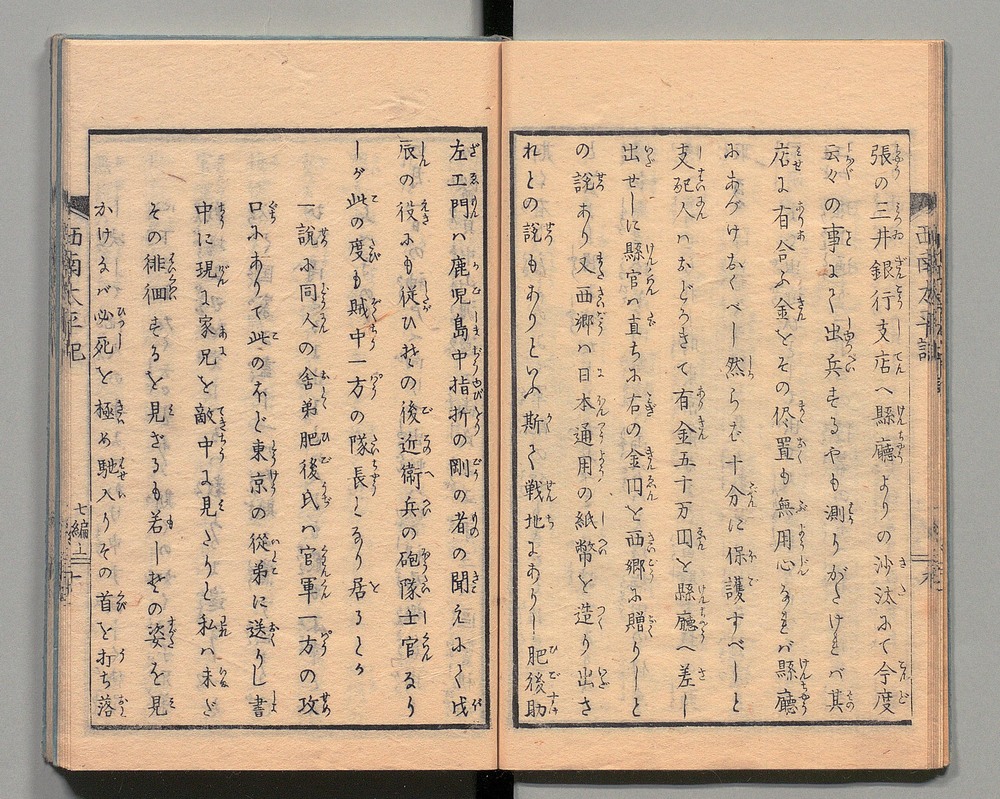 張の三井銀行支店へ縣廳よりの沙汰にて今度
云々の事にて出兵するやも測りがたければ其
店に有合ふ金をその侭置も無用心なれば縣廳
にあづけおくべし然らば十分に保護すべしと
支配人ハおどろきて有金五十万円を縣廳へ差し
出せしに縣官ハ直ちに右の金円を西郷に贈りしと
の説あり又西郷ハ日本通用の紙幣を造り出さ
れとの説もありといふ斯て戦地にありし肥後助
左エ門ハ鹿児島中指折の剛の者の聞えにて戊
辰の役にも従ひ其の後近衛兵の砲隊士官なり
しが此の度も賊中一方の隊長となり居るとか
一説に同人の舎弟肥後氏ハ官軍一方の攻
口にありて此のほど東京の從弟に送りし書
中に現に家兄を敵中に見たりと私ハ未だ
その徘徊するを見ざるも若し其の姿を見
かけるバ必死を極め馳入りその首を打ち落
西南太平記
七編上